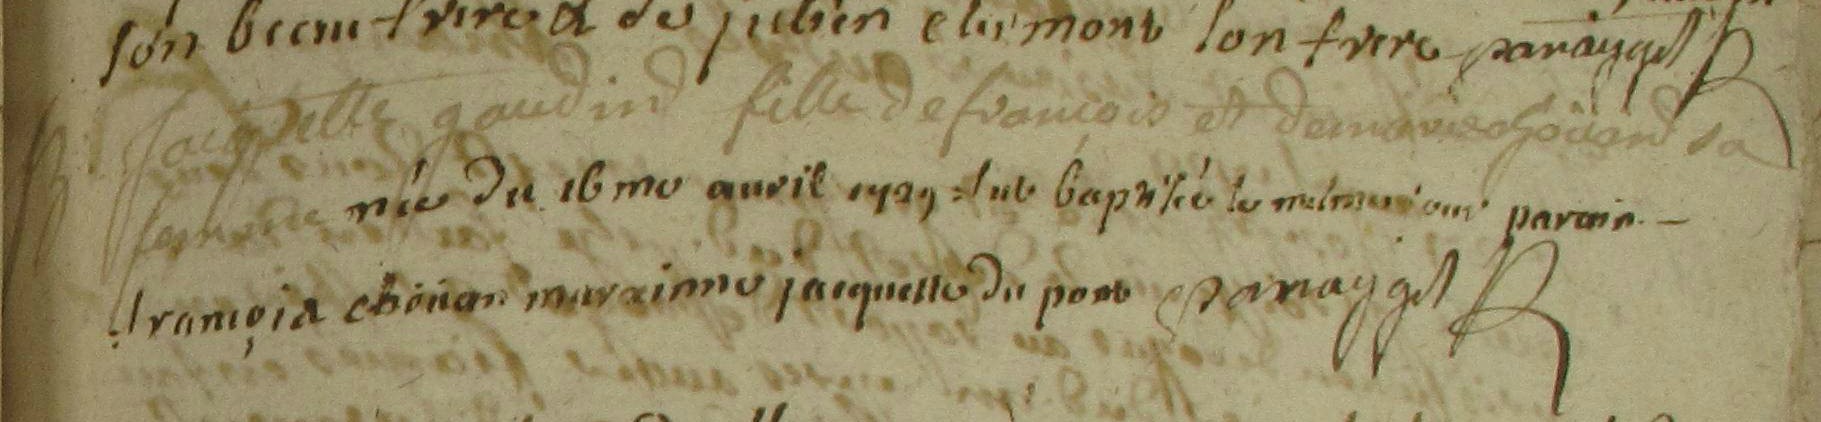 son beau frere & de julien clermont son frere
Jacquette gaudin fille de françois et de marie chouand sa
femme née du 16me auril 1729 fut baptisée le mesme iour parain
françois choüan marainne jacquette du pont